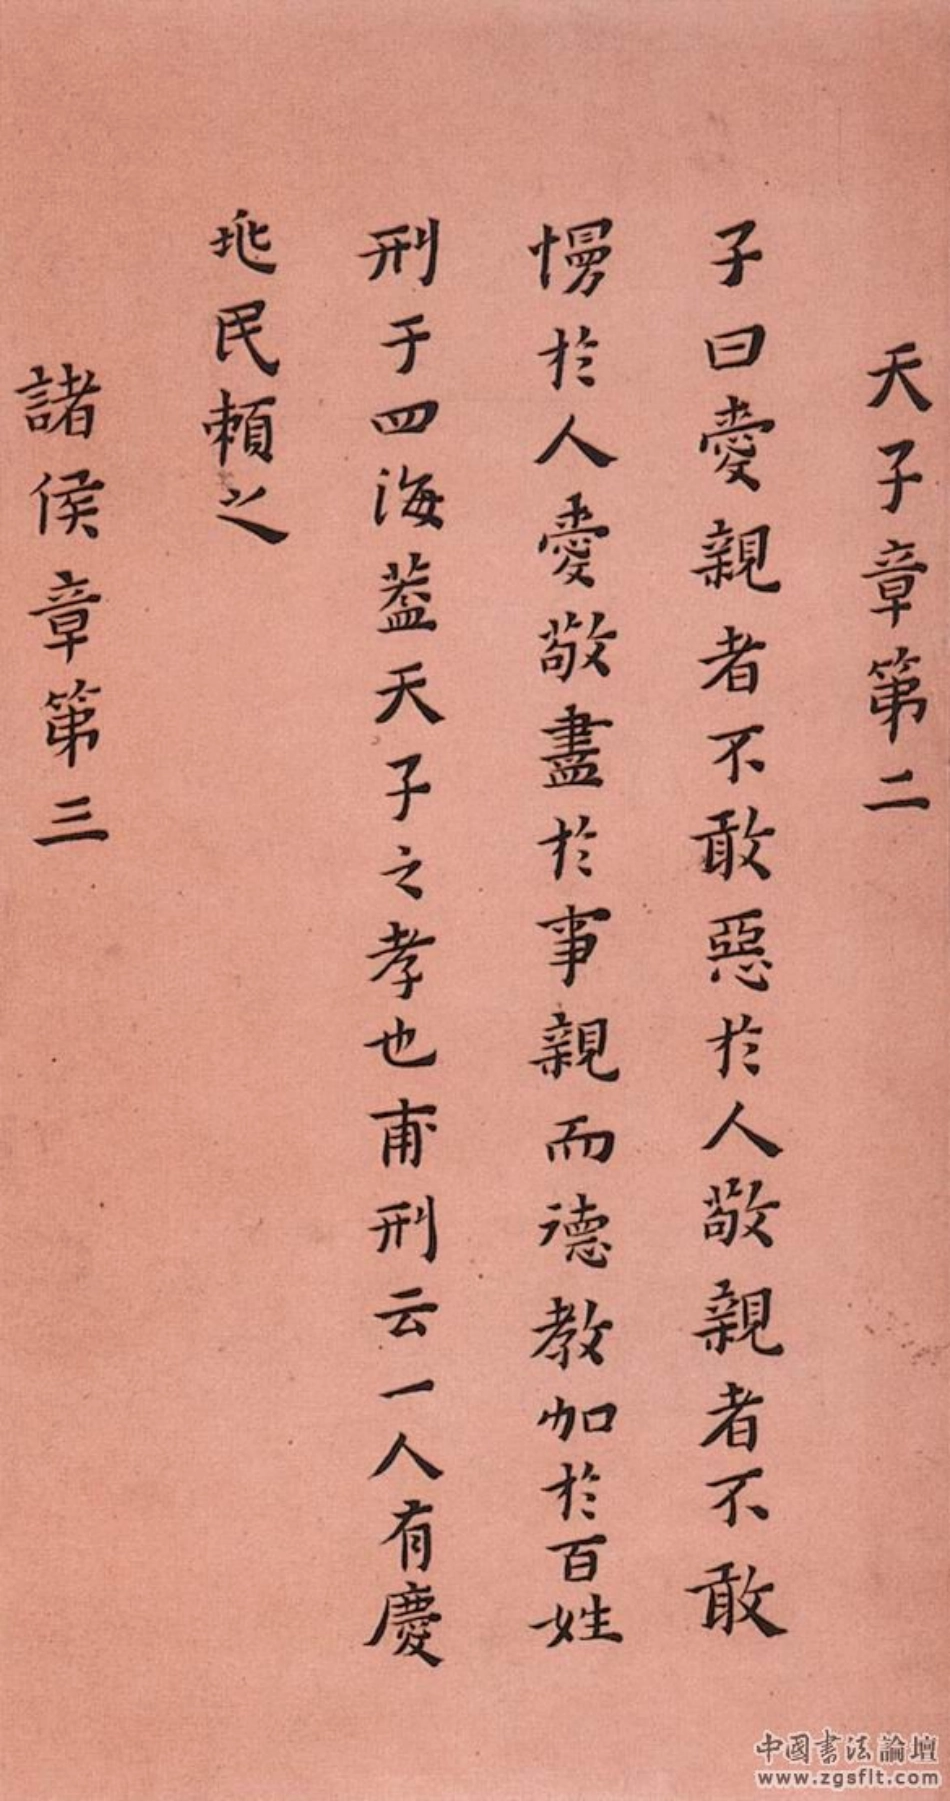 天子章第二
子曰愛親者不敢惡於人敬親者不敢
慢於人愛敬盡於事親而德教加於百姓
刑于四海蓋天子之孝也甫刑云一人有慶
兆民賴之
諸侯章第三
中國書法論壇
www.zgsflt.com